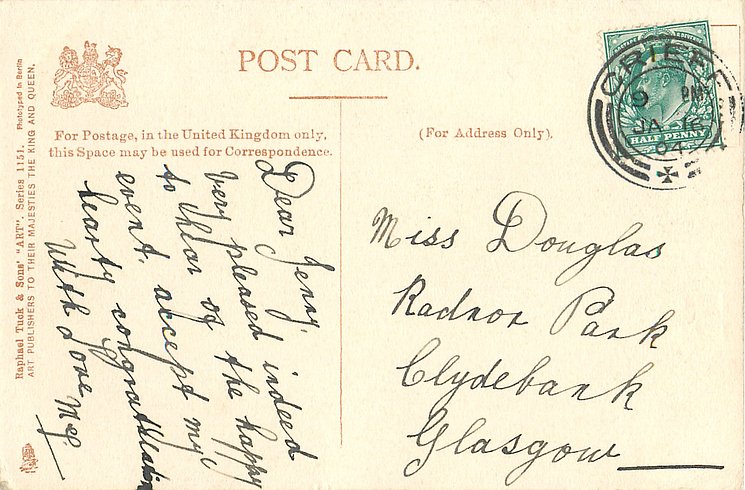 POST CARD.
For Postage, in the United Kingdom only,
this Space may be used for Correspondence.
(For Address Only).
Raphael Tuck & Sons' "ART". Series 1151. Phototyped in Berlin
ART PUBLISHERS TO THEIR MAJESTIES THE KING AND QUEEN.
Dear Jenny,
Very pleased indeed
to hear of the happy
event. accept my
hearty congratulation
With Love Meg
CRIEFF
9 PM
JA 6
04
HALF PENNY
Miss Douglas
Radnor Park
Clydebank
Glasgow